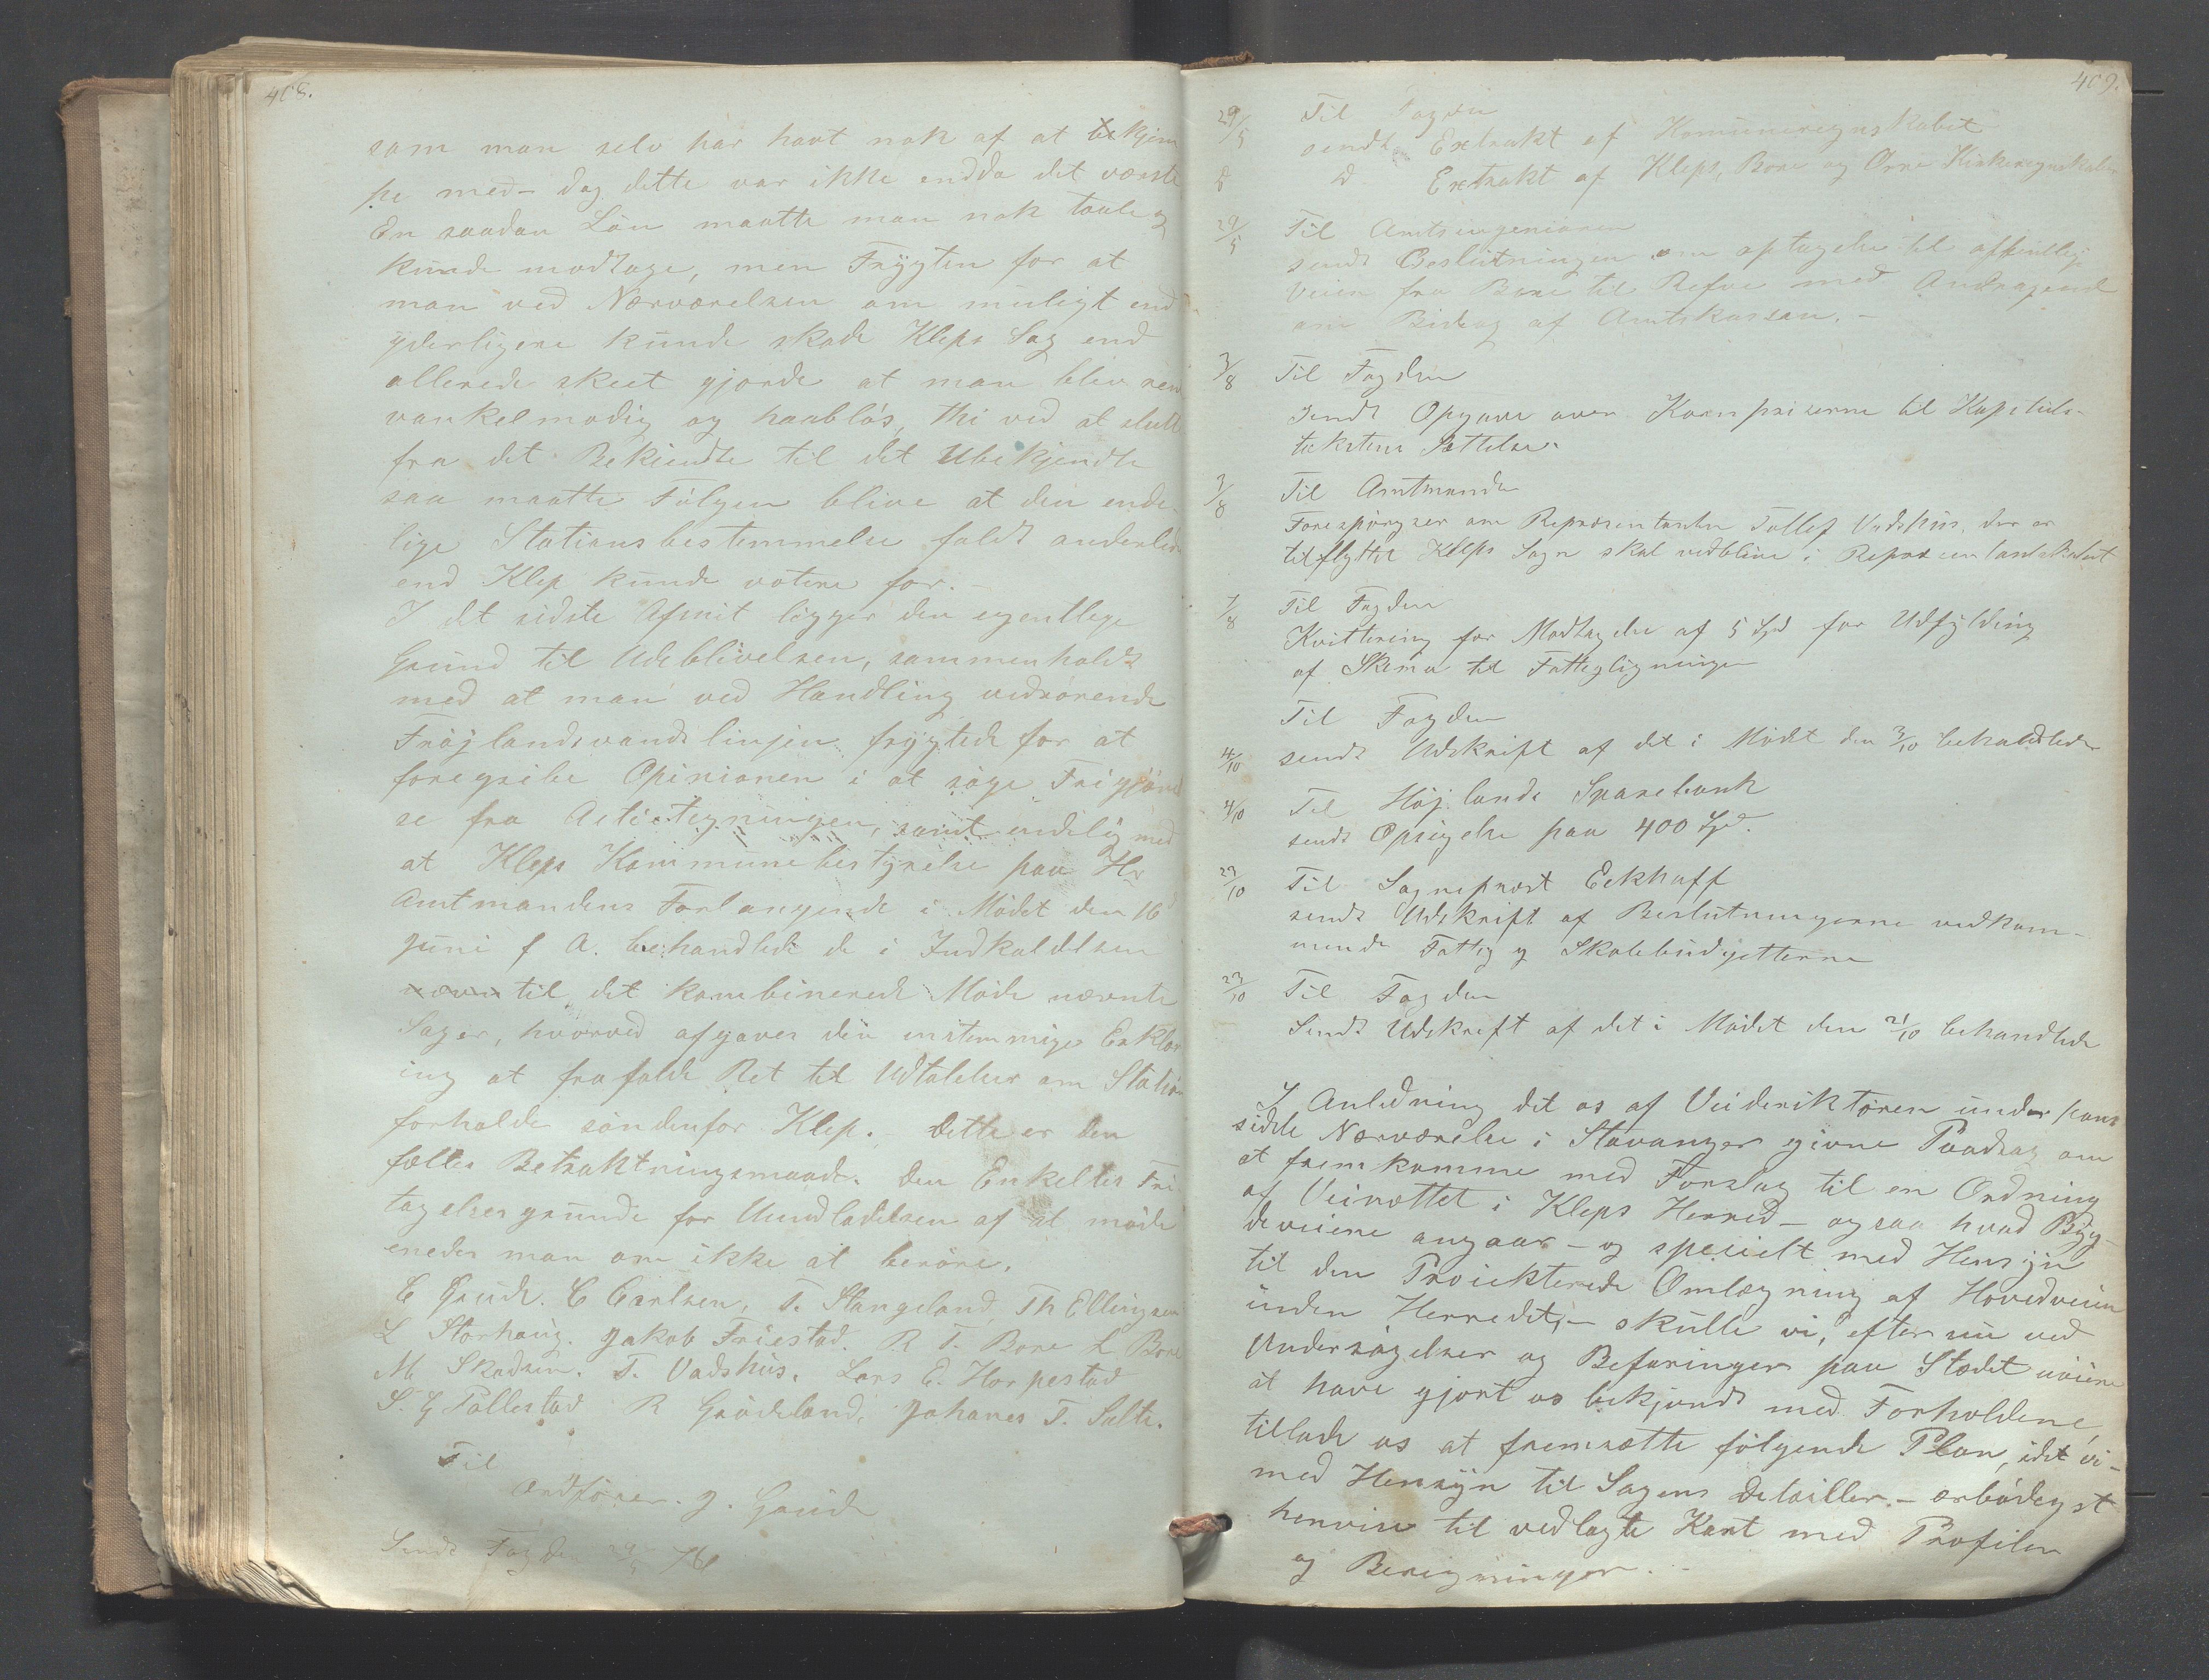 408.
som man selv har havt nok af at bekjem
pe med – dog dette var ikke endda det værste
En saadan Løn maatte man nok taale og
kunde modtage, men Frygten for at
man ved Nærværelsen om muligt end
yderligere kunde skade Kleps Sag end
allerede skeet gjorde at man blev
vankelmodig og haabløs, thi ved at slutte
fra det Bekiendte til det Ubekjendte
saa maatte Følgen blive at den ende-
lige Stationsbestemmelse faldt anderledes
end Klep kunde votere for.
I det sidste Afsnit ligger den egentlige
Grund til Udeblivelsen, sammenholdt
med at man ved Handling vedrørende
Frøjlandsvandslinjen frygtede for at
foregribe Opinionen i at søge Frigjørel
se fra Actietegningen, samt endelig med
at Kleps Kommunebestyrelse paa Hr
Amtmandens Forlangende i Mødet den 16d
Juni f A. behandlede de i Indkaldelsen
til det kombinerede Møde nævnte
Sager, hvorved afgaves den enstemmige Erklær
ing at frafalde Ret til Udtalelser om Stations
forholde søndenfor Klep. Dette er den
fælles Betraktningsmaade. Den Enkeltes Fri
tagelsesgrunde for Undladelsen af at møde
enedes man om ikke at berøre.
E Grude. C Carlsen, T. Stangeland, Th Ellingsen
L Storhaug. Jakob Friestad. R T. Bore L Bore
M. Skadsem. T. Vadshus. Lars E. Horpestad
S. G Pollestad R Grødeland, Johanes T. Salte.
Til
Ordfører J. Grude
Sendt Fogden 29/5 76
409.
29/5 Til Fogden
sendt Extrakt af Komuneregnskabet
D D Extrakt af Kleps, Bore og Orre Kirkeregnskaber
29/5 Til Amtsingeniøren
sendt Beslutningen om optagelse til offentlig
Veien fra Bore til Refve med Andragende
om Bidrag af Amtskassen. –
3/8 Til Fogden
sendt Opgave over Kornpriserne til Kapitels-
takstens Sættelse.
3/8 Til Amtmanden
Forespørgser om Repræsentanten Tollef Vadshus, der er
tilflyttet Kleps Sogn skal vedblive i Repræsentantskabet
7/8 Til Fogden
Kvittering for Modtagelse af 5 Spd for Udfylding
af Skema til Fattigligningen
Til Fogden
4/10 sendt Udskrift af det i Mødet den 3/10 behandlede
4/10 Til Højlands Sparebank
sendt Opsigelse paa 400 Spd.
23/10 Til Sogneprest Eckhoff
sendt Udskrift af Beslutningerne vedkom-
mende Fattig og Skolebudjetterne
23/10 Til Fogden
Sendt Udskrift af det i Mødet den 21/10 behandlede
I Anledning det os af Veidirektøren under hans
sidste Nærværelse i Stavanger givne Paadrag om
at fremkomme med Forslag til en Ordning
af Veinættet i Kleps Herred – ogsaa hvad Byg-
deveiene angaar – og specielt med Hensyn
til den Proiekterede Omlægning af Hovedveien
inden Herredet, – skulle vi, efter nu ved
Undersøgelser og Befaringer paa Stedet
at have gjort os bekjendt med Forholdene,
tillade os at fremsætte følgende Plan, idet vi –
med Hensyn til Sagens Detailler – ærbødigst
henvise til vedlagte Kart med Profiler
og Beregninger. –